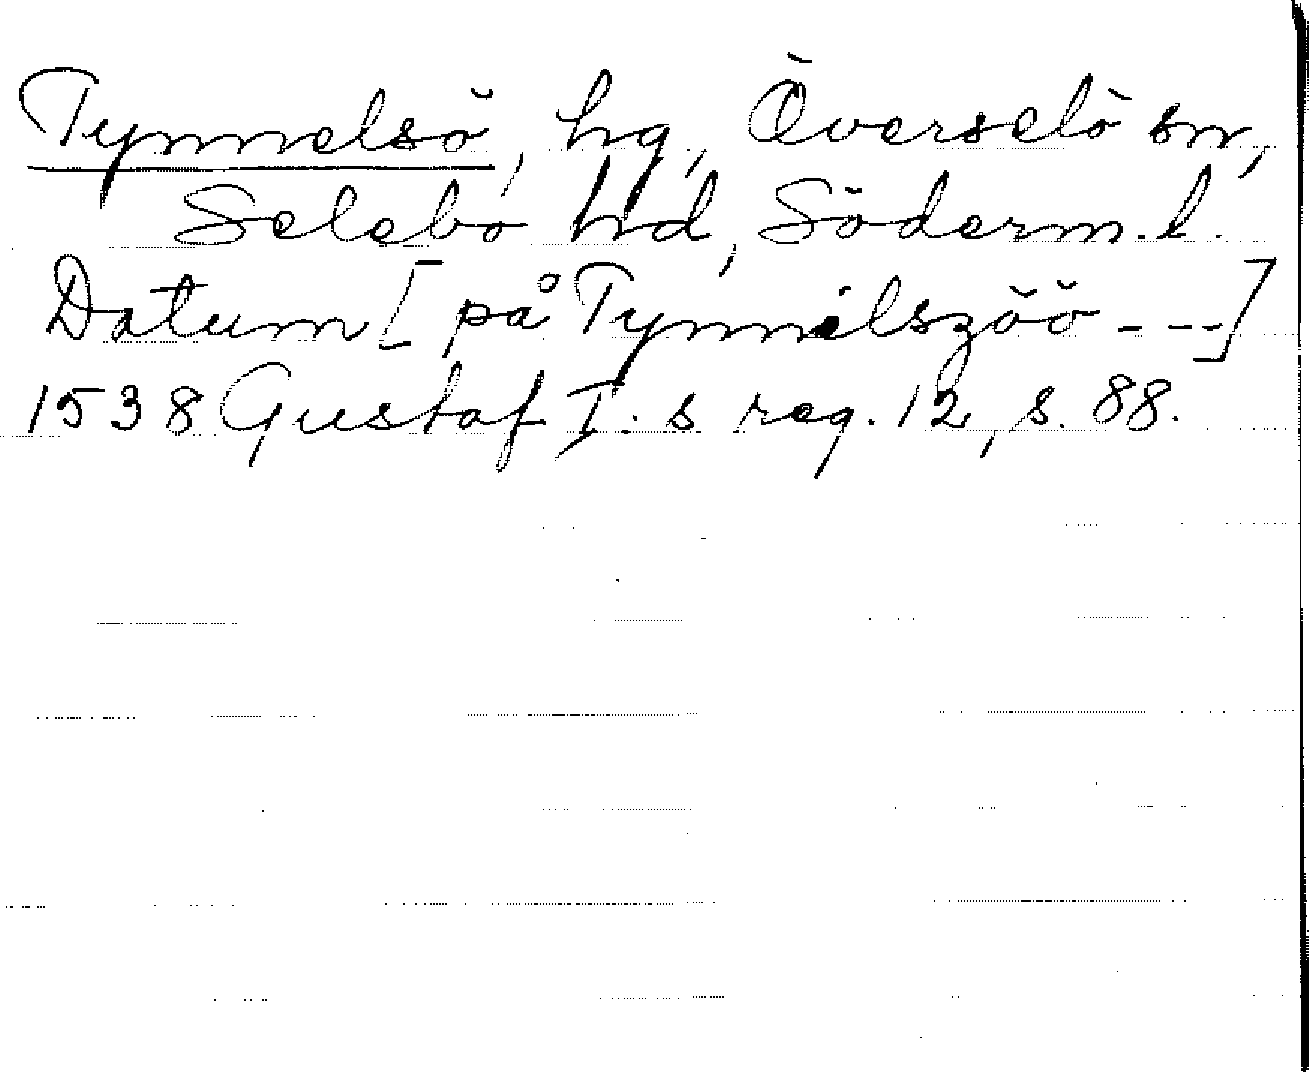 Tynnelsö, hg, Överselö sn,
Selebo hd, Söderm. l.
Datum [på Tynnilszöö ---]
1538 Gustaf I. s reg. 12, s. 88.